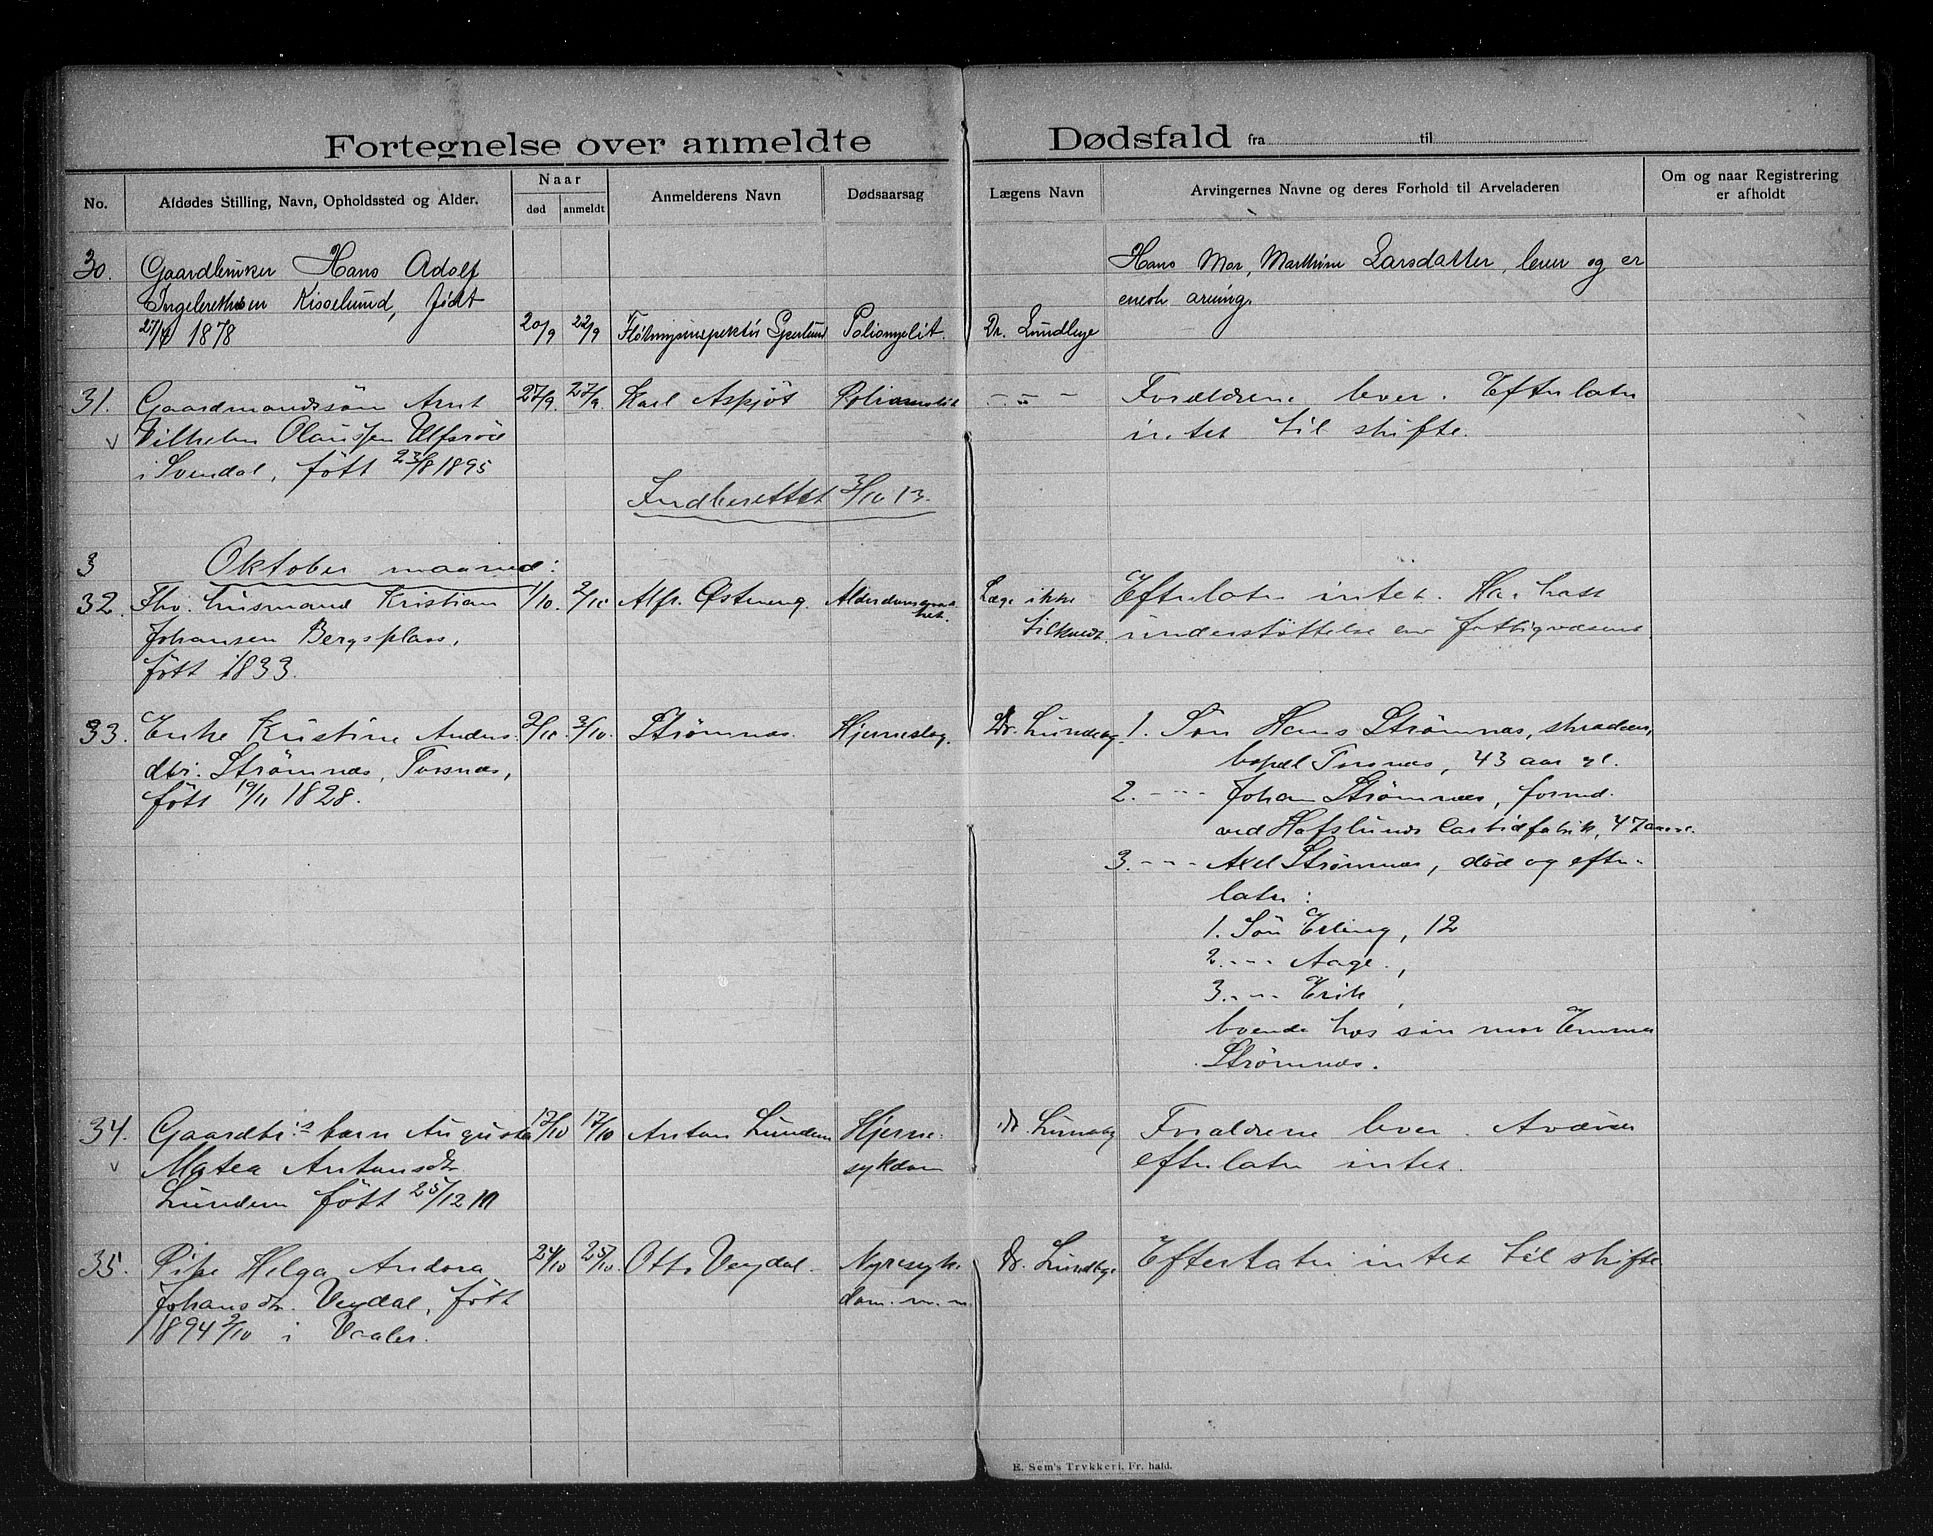 Fortegnelse over anmeldte Dødsfald fra til
No. Afdødes Stilling, Navn, Opholdssted og Alder. Naar Anmelderens Navn Dødsaarsag Lægens Navn Arvingernes Navne og deres Forhold til Arveladeren Om og naar Registrering
død anmeldt er afholdt
30. Gaardbruker Hans Adolf Hans Mor, Marthine Larsdatter, lever og er
Kisselund, født enest arving.
1878 20/9 22/9 Poliomyelit. Dr. Lundbye
31. Gaardmandssøn Arnt 27/9. 27/9. Karl Aspjøt - " - Forældrene lever. Efterlater
Vilhelm Olaussen intet til skifte.
i Svendal, født 23/8 1895
Indberettet 3/10 13.
3 Oktober maaned:
32. Fhv. husmand Kristian 1/10. 2/10 Alfr. Østereng. Læge ikke Efterlater intet. Har hatt
Johansen Bergsplass, tilkaldt. understøttelse av fattigvæsenet.
født 1833.
33. Enke Kristine Anders- 2/10. 3/10. Strømnæs. Hjerneslag. Dr. Lundby 1. Søn Hans Strømnæs,
dtr. Strømnæs, Torsnæs, bopæl Torsnæs, 43 aar gl.
født 19/11 1828. 2. - - - Johan Strømnæs, formd.
ved Hafslunds Carbidfabrik, 47 aar gl.
3. - - - Axel Strømnæs, død og efter-
later:
1. Søn Erling, 12
2. - - - Aage.,
3. - - - Erik ,
boende hos sin mor Emma
Strømnæs.
34. Gaardbr.s barn Augusta 13/10 17/10 Anton Lundem Hjerne- Dr. Lundby Forældrene lever. Avdøde
Matea Antonsdtr. sykdom efterlater intet.
Lundem født 25/12 10
35. Pike Helga Andora 24/10 25/10. Otto Veydal. Nyresyk- Dr. Lundbye Efterlater intet til skifte
Johansdtr. Veydal, født dom. m. m.
1894 2/10 i Vaaler.
E. Sem's Trykkeri, Fr. hald.